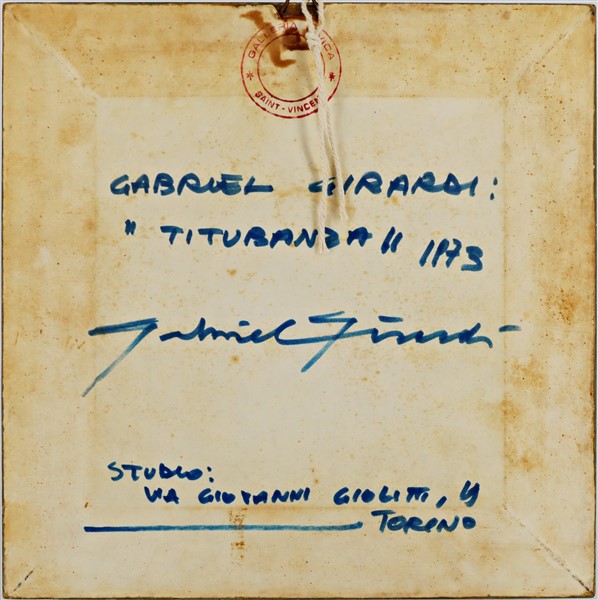 GALLERIA
SAINT-VINCENT
GABRIEL GIRARDI:
"TITUBANZA" 1973
Gabriel Girardi
STUDIO:
VIA GIOVANNI GIOLITTI,
TORINO